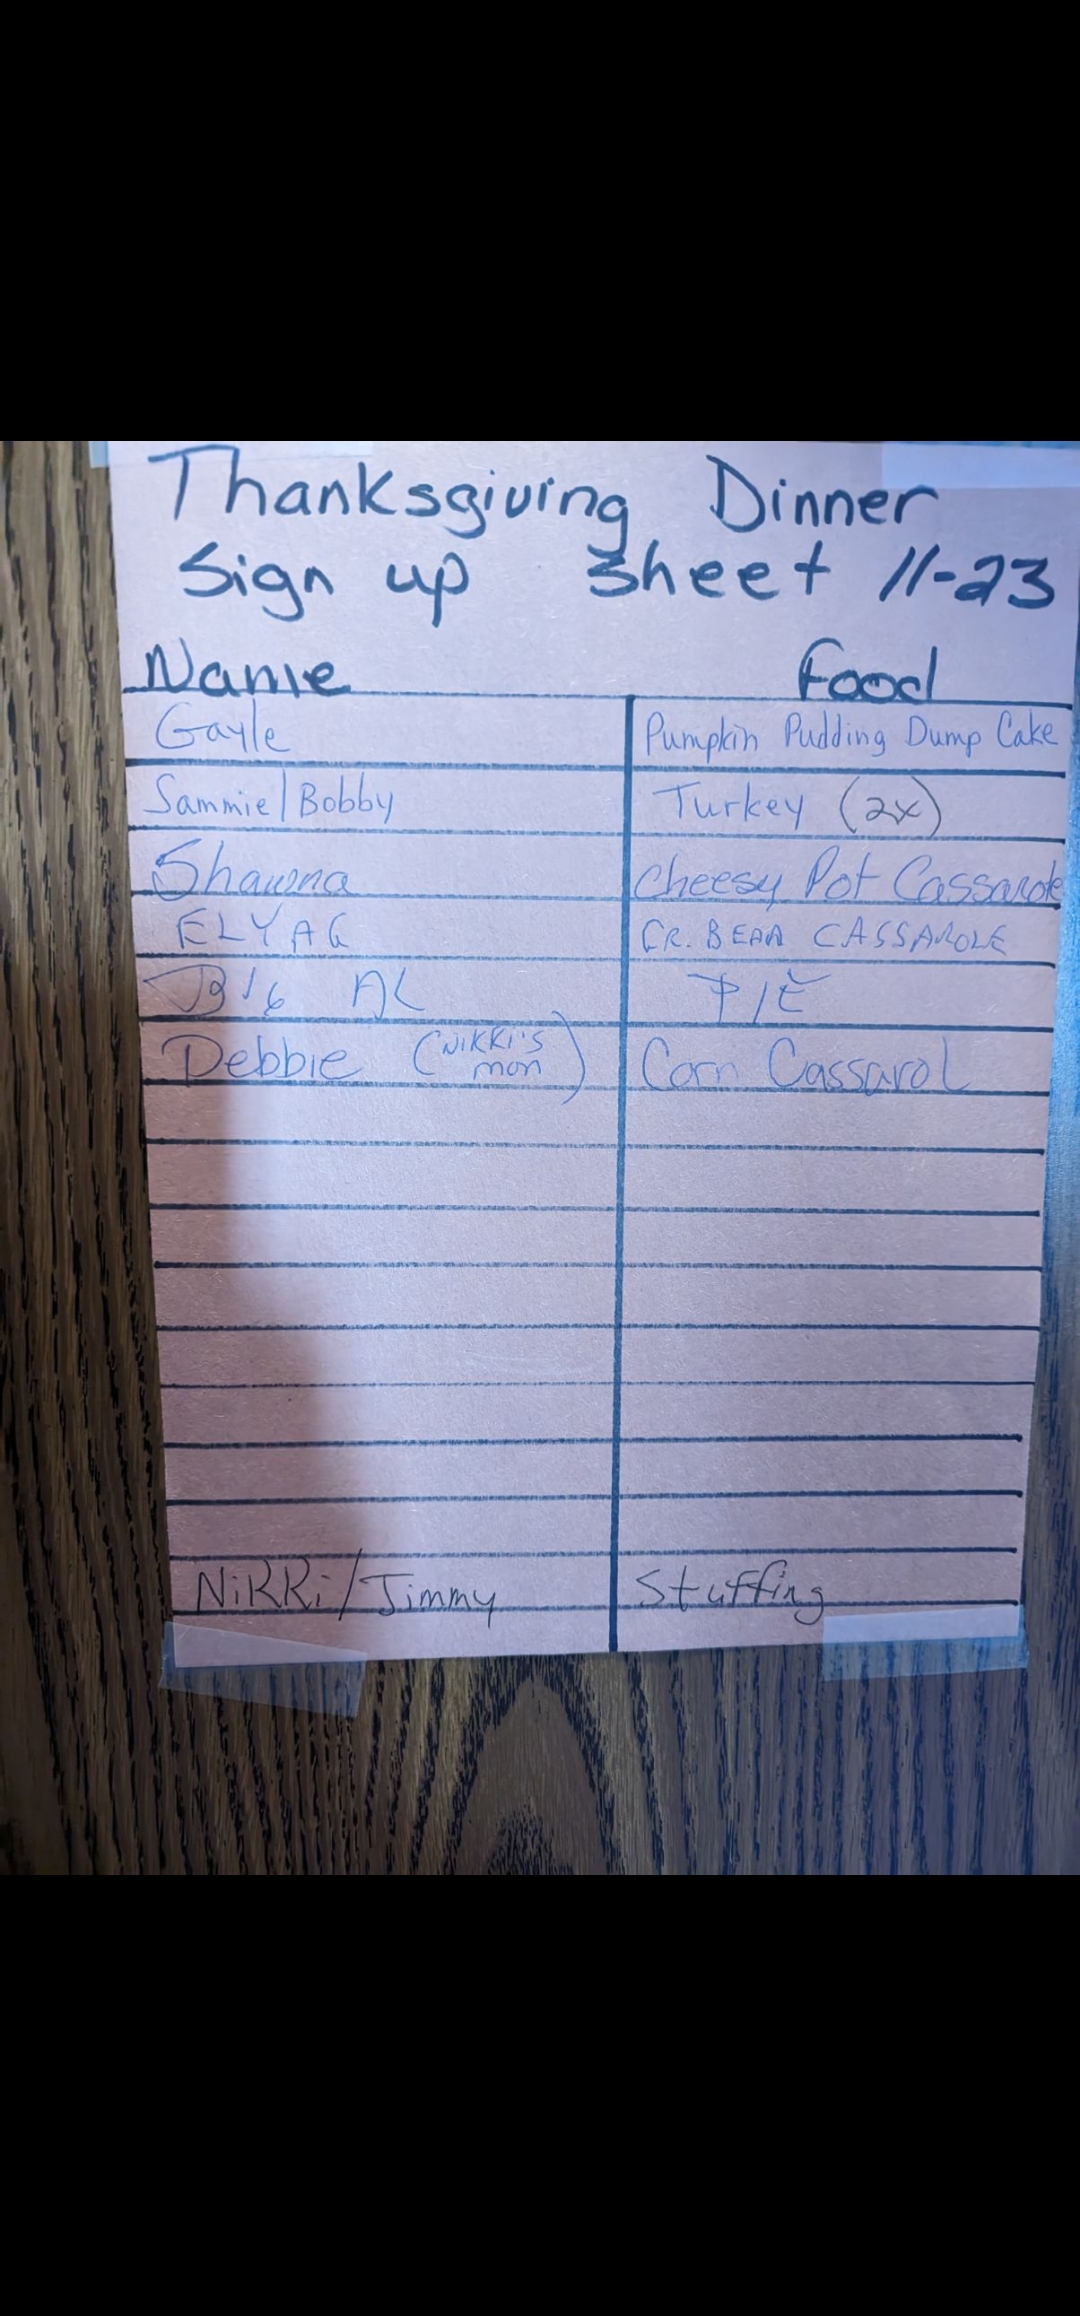 Thanksgiving Dinner
Sign up Sheet 11-23
Name Food
Gayle Pumpkin Pudding Dump Cake
Sammie/Bobby Turkey (2x)
Shawna Cheesy Pot Cassarole
ELYAG GR. BEAN CASSAROLE
BIG AL PIE
Debbie (Nikki's mom) Corn Cassarol
Nikki/Jimmy Stuffing